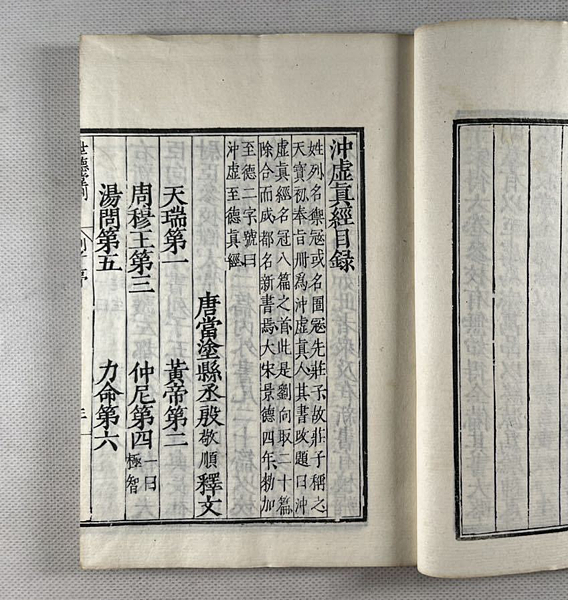 沖虛眞經目録
姓列名禦冦或名圄冦先莊子故莊子稱之
天寶初奉旨冊爲沖虛眞人其書改題曰沖
虛眞經名冠八篇之首此是劉向取二十篇
除合而成都名新書焉大宋景德四年勑加
至德二字號曰
沖虛至德眞經
唐當塗縣丞殷敬順釋文
天瑞第一　黃帝第二
周穆王第三　仲尼第四　一曰極智
湯問第五　力命第六
世德堂刊